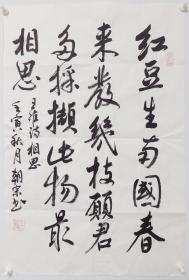 红豆生南國春
来發幾枝願君
多採擷此物最
相思
王维诗相思
壬寅秋月朝宗书